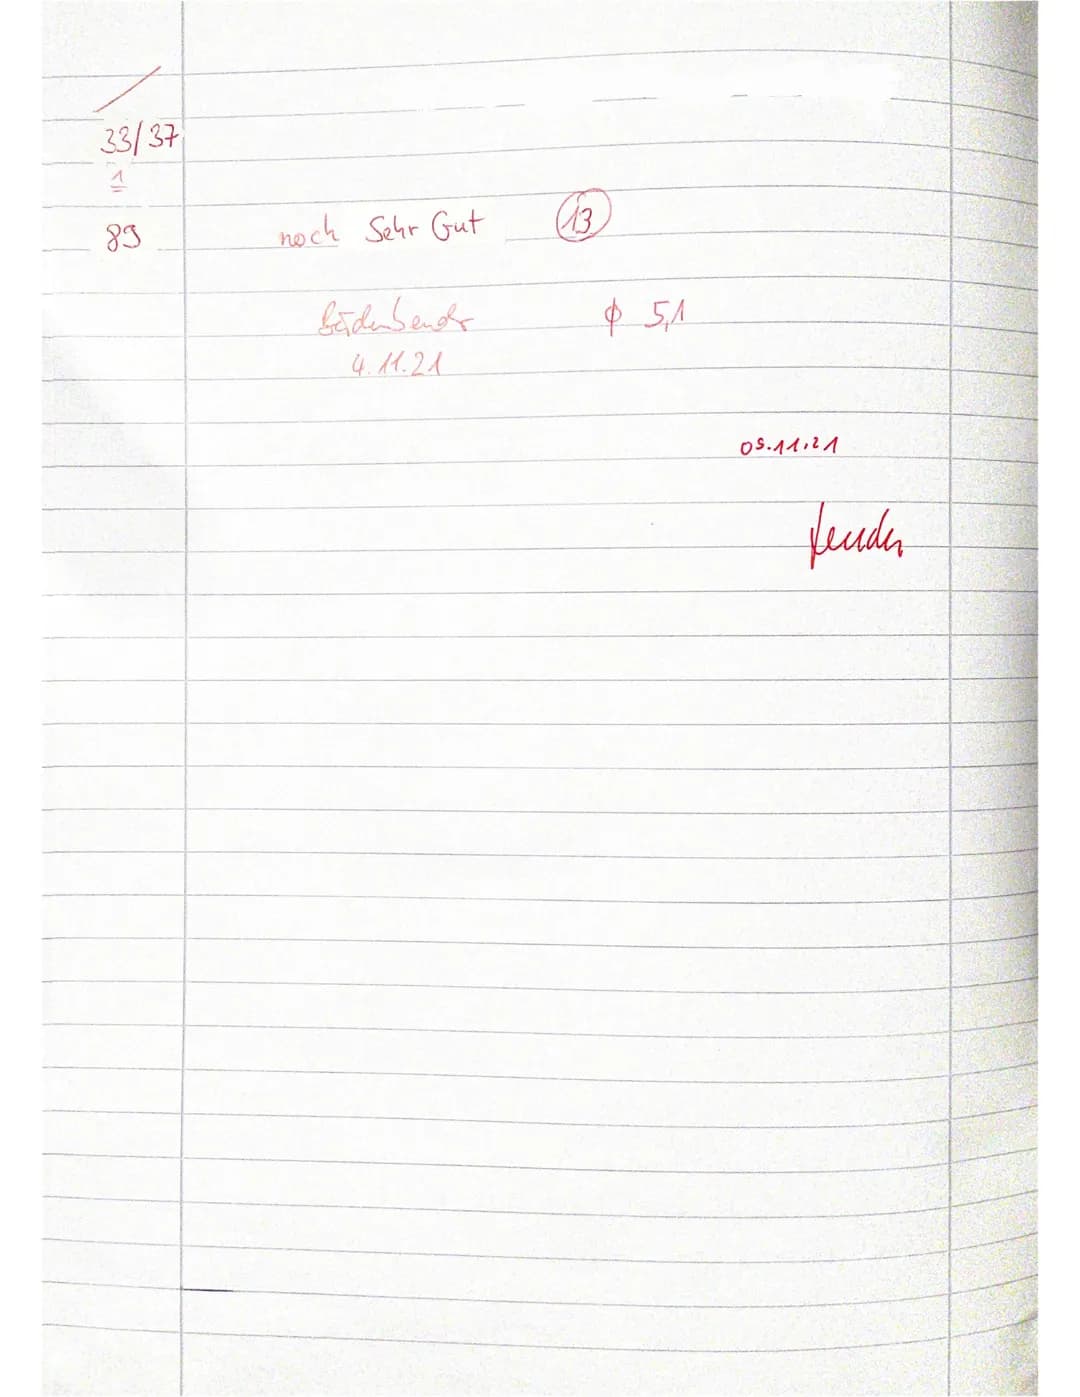 33/37
1
89 noch Sehr Gut 13
ϕ 5,1
4.11.21
05.11.21